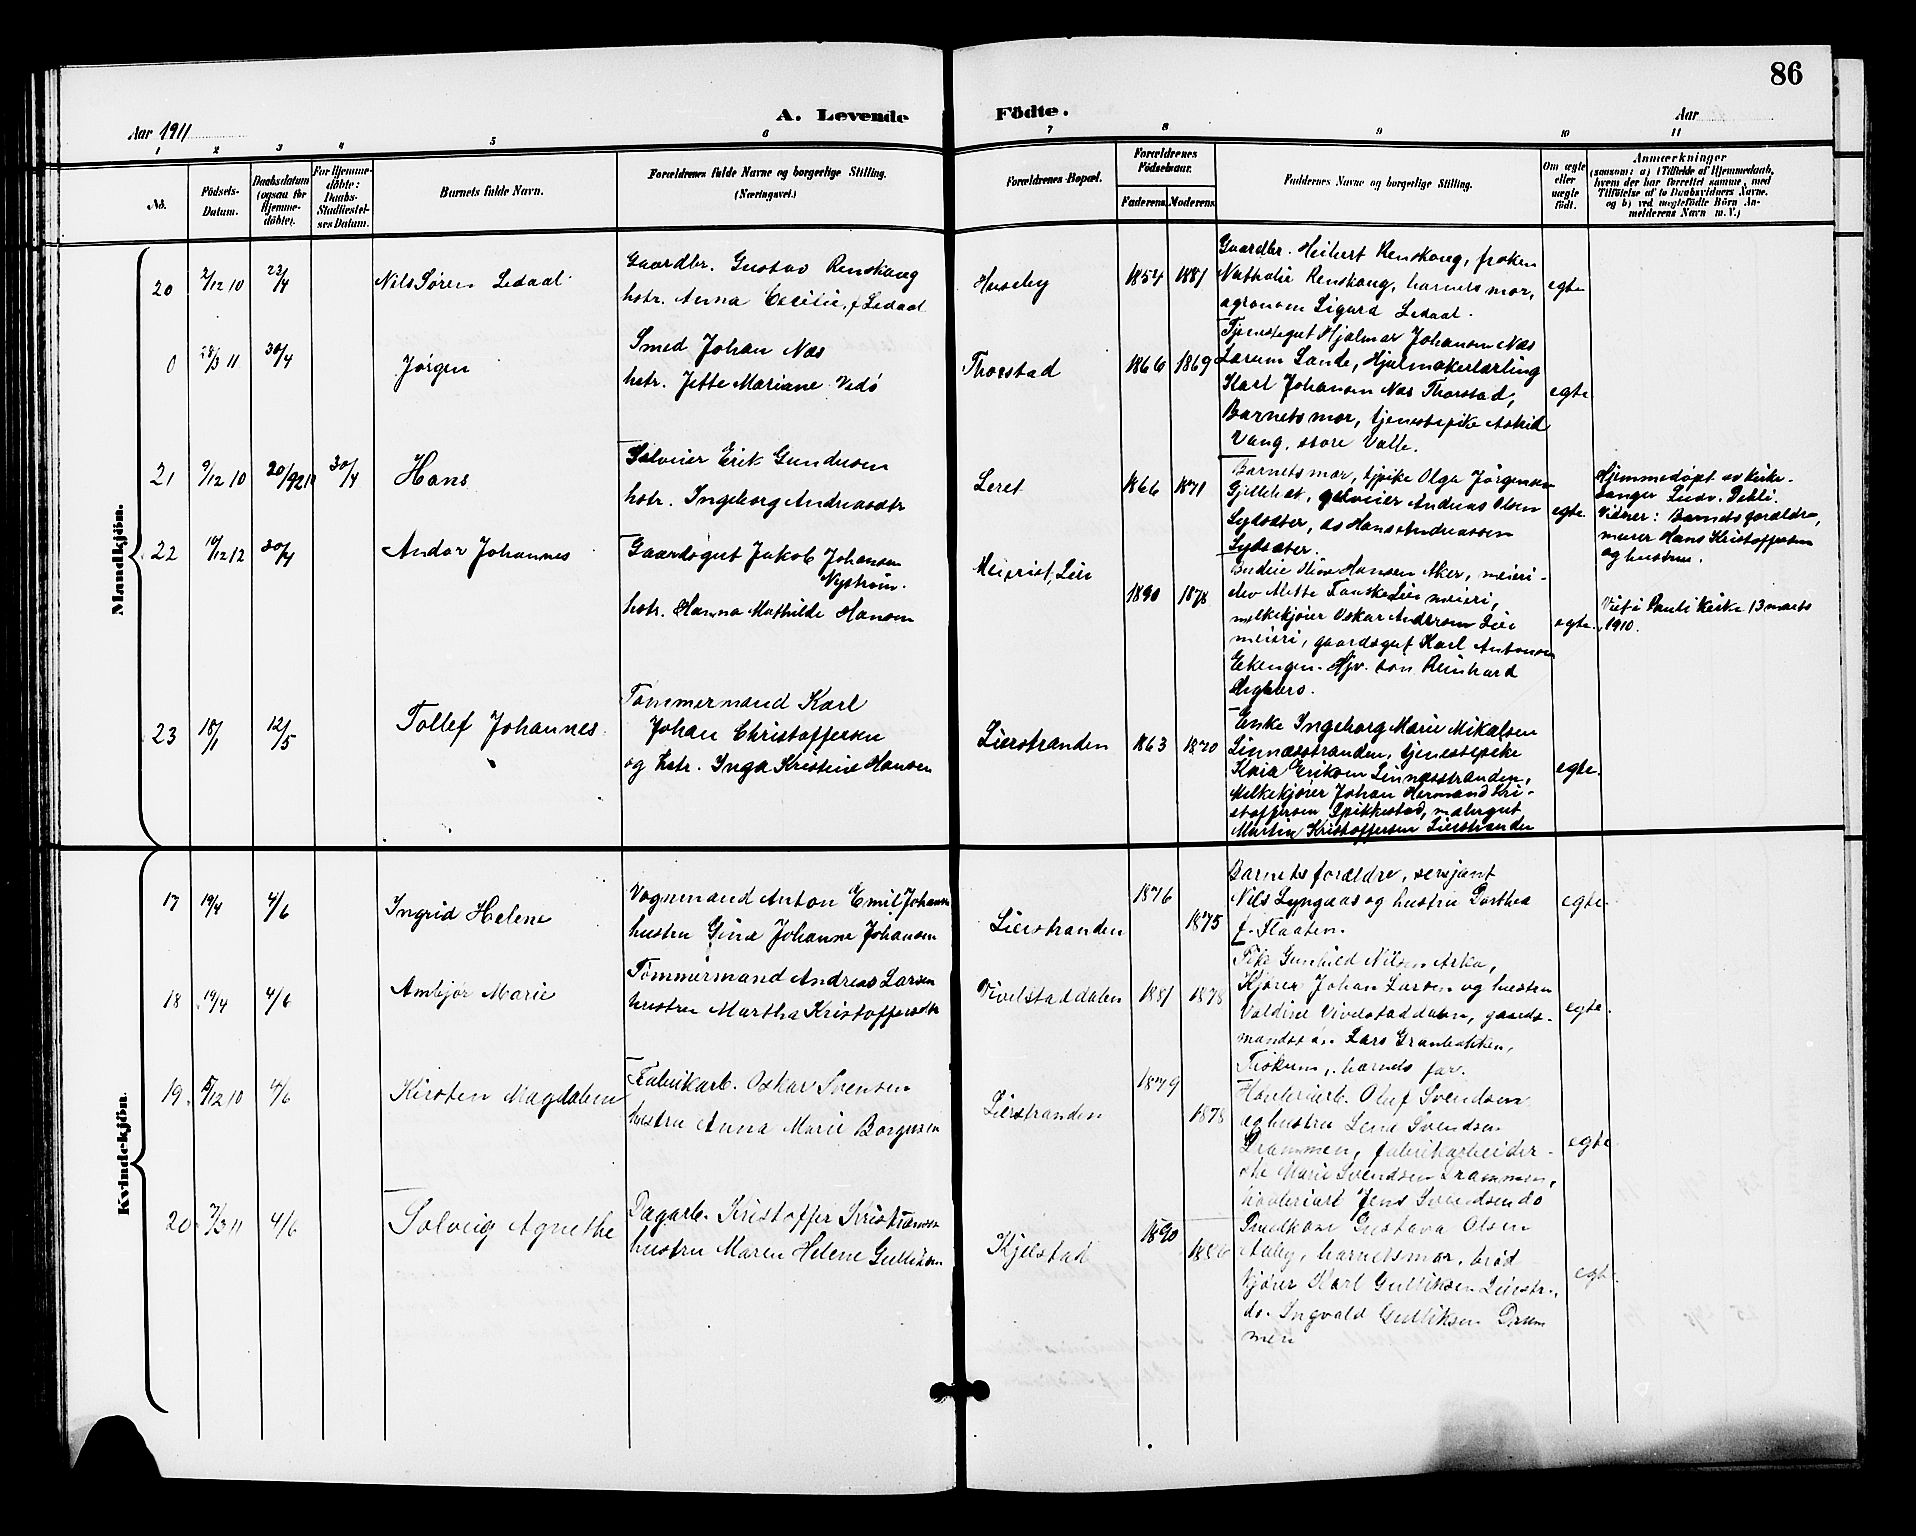 86
A. Levende Födte.
Aar 1911
Aar
1 2 3 4 5 6 7 8 9 10 11
No.
Födsels-
Datum.
Daabsdatum
(ogsaa for
Hjemme-
döbte).
For Hjemme-
döbte:
Daabs-
Stadfæstel-
ses Datum.
Barnets fulde Navn.
Forældrenes fulde Navne og borgerlige Stilling.
(Næringsvei.)
Forældrenes Bopæl.
Forældrenes
Födselsaar.
Faderens. Moderens.
Faddernes Navne og borgerlige Stilling.
Om ægte
eller
uægte
født.
Anmærkninger
(saasom: a) i Tilfælde af Hjemmedaab,
hvem der har forrettet samme, med
Tilföielse af to Daabsvidners Navne.
og b) ved uægtefödte Börn An-
melderens Navn m. V.)
Mandkjön.
20 2/12 10 23/4 Nils Søren Ledaal
Gaardbr. Gustav Renskoug
hstr. Anna Cecilie, f Ledaal
Huseby 1854 1881
Gaardbr. Heibert Renskoug, frøken
Nathalie Renskoug, barnets mor,
agronom Sigurd Ledaal.
egte
0 28/3 11 30/4 Jørgen
Smed Johan Næs
hstr. Jette Mariane Vedø
Thorstad 1866 1869
Tjenestegut Hjalmar Johansen Næs
Sande, Hjulmakerlærling
Karl Johansen Næs Thorstad,
Barnets mor, tjenestepike Astrid
Vang, store Valle.
egte
21 9/12 10 30/4 Hans
Selveier Erik Gundersen
hstr. Ingeborg Andreasdtr
Leret 1866 1871
Barnets mor, tjpike Olga Jørgensen
Gjellebæk, selveier Andreas Olsen
Sydsæter, do Hans Andreassen
Sydsæter.
egte
Hjemmedøpt av kirke-
sanger Ludv. Dehli.
Vidner: Barnets forældre,
murer Hans Kristoffersen
og hustru.
22 30/4 Andor Johannes
Gaardsgut Jakob Johansen
Nystrøm.
hstr. Hanna Mathilde Hansen
Meieriet, Lier
1890 1878
Budeie Oline Hansen Aker, meieri-
elev Mette Fauske Lier meieri,
melkekjører Oskar Andersen Lier
meieri, gaardsgut Karl Antonsen
Ekengen. Hjv. søn Reinhard
egte.
Viet i Pauli Kirke 13 marts
1910.
23 18/1 12/5 Tollef Johannes
Tømmermand Karl
Johan Christoffersen
og hstr. Inga Kristine Hansen
Lierstranden 1863 1870
Enke Ingeborg Marie Mikalsen
Linnesstranden, tjenestepike
Kaia Eriksen Linnesstranden,
Melkekjører Johan Hermand Kri-
stoffersen Spikkestad, malergut
Martin Kristoffersen Lierstranden
egte.
Kvindekjön.
17 19/4 4/6 Ingrid Helene
Vognmand Anton Emil Johansen
hustru Gina Johanne Johansen
Lierstranden 1876 1875
Barnets forældre, sersjant
Nils Lyngaas og hustru Dorthea
f. Flaaten.
egte.
18 19/4 4/6 Ambjør Marie
Tømmermand Andreas Larsen
hustru Martha Kristoffersdtr
Vivelstaddalen 1881 1878
Pike Gunhild Nilsen Aska,
Kjører Johan Larsen og hustru
Valdine Vivelstaddalen, gaard-
mandssøn Lars Granbakken,
barnets far.
egte.
19. 5/12 10 4/6 Kirsten Magdalene
Fabrikarb. Oskar Svensen
hustru Anna Marie Borgersen
Lierstranden 1879 1878
Høvleriarb. Oluf Svendsen
og hustru Lena Svendsen
Drammen, fabrikarbeider-
ske Marie Svendsen Drammen,
høvleriarb Jens Svendsen do
egte
20 7/3 11 4/6 Solveig Agnethe
Dagarb. Kristoffer Kristiansen
hustru Maren Helene Gulliksen
Kjelstad 1890
Gustava Olsen
Aaby, barnets mor, brød
kjører Karl Gulliksen Lierstr.,
do. Ingvald Gulliksen Dram
men
egte.